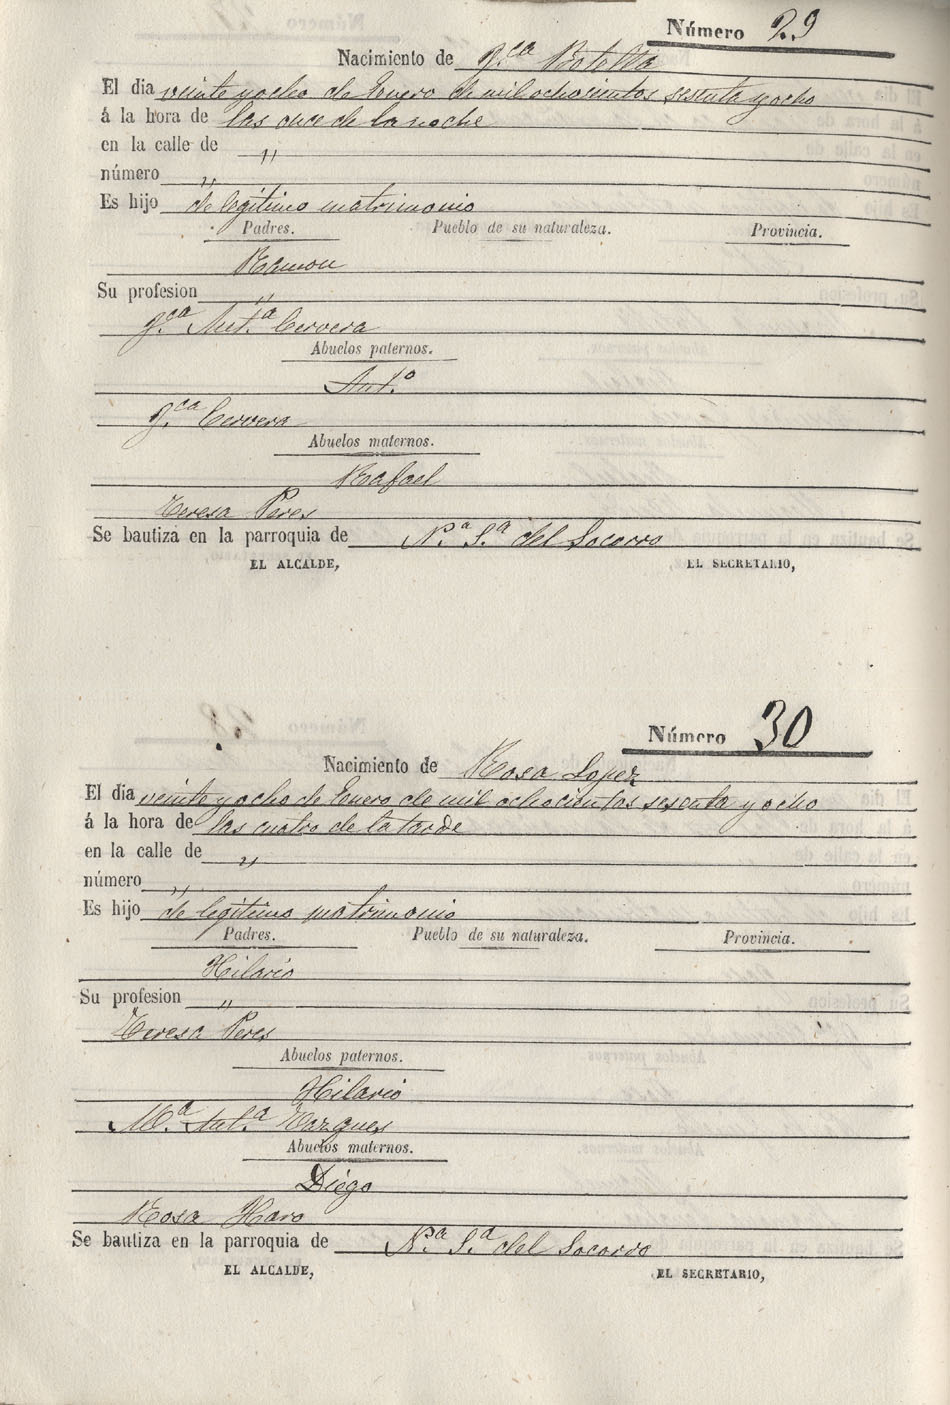 Número 29
Nacimiento de F.ca Botella
El dia veinte y ocho de Enero de mil ochocientos sesenta y ocho
á la hora de las once de la noche
en la calle de "
número "
Es hijo de legitimo matrimonio
Padres. Pueblo de su naturaleza. Provincia.
Ramon
Su profesion "
F.ca Ant.a Cervera
Abuelos paternos.
Ant.o
F.ca Cervera
Abuelos maternos.
Rafael
Teresa Peres
Se bautiza en la parroquia de N.a S.a del Socorro
EL ALCALDE, EL SECRETARIO,
Número 30
Nacimiento de Rosa Lopez
El dia veinte y ocho de Enero de mil ochocientos sesenta y ocho
á la hora de las cuatro de la tarde
en la calle de "
número "
Es hijo de legitimo matrimonio
Padres. Pueblo de su naturaleza. Provincia.
Hilario
Su profesion "
Teresa Peres
Abuelos paternos.
Hilario
M.a Ant.a
Abuelos maternos.
Diego
Rosa Haro
Se bautiza en la parroquia de N.a S.a del Socorro
EL ALCALDE, EL SECRETARIO,